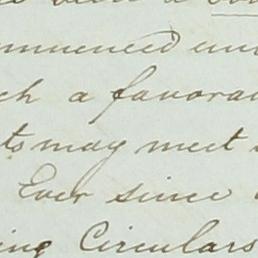 been a
mmenced un
ch a favora
ts may meet
Ever since
ing Circulars